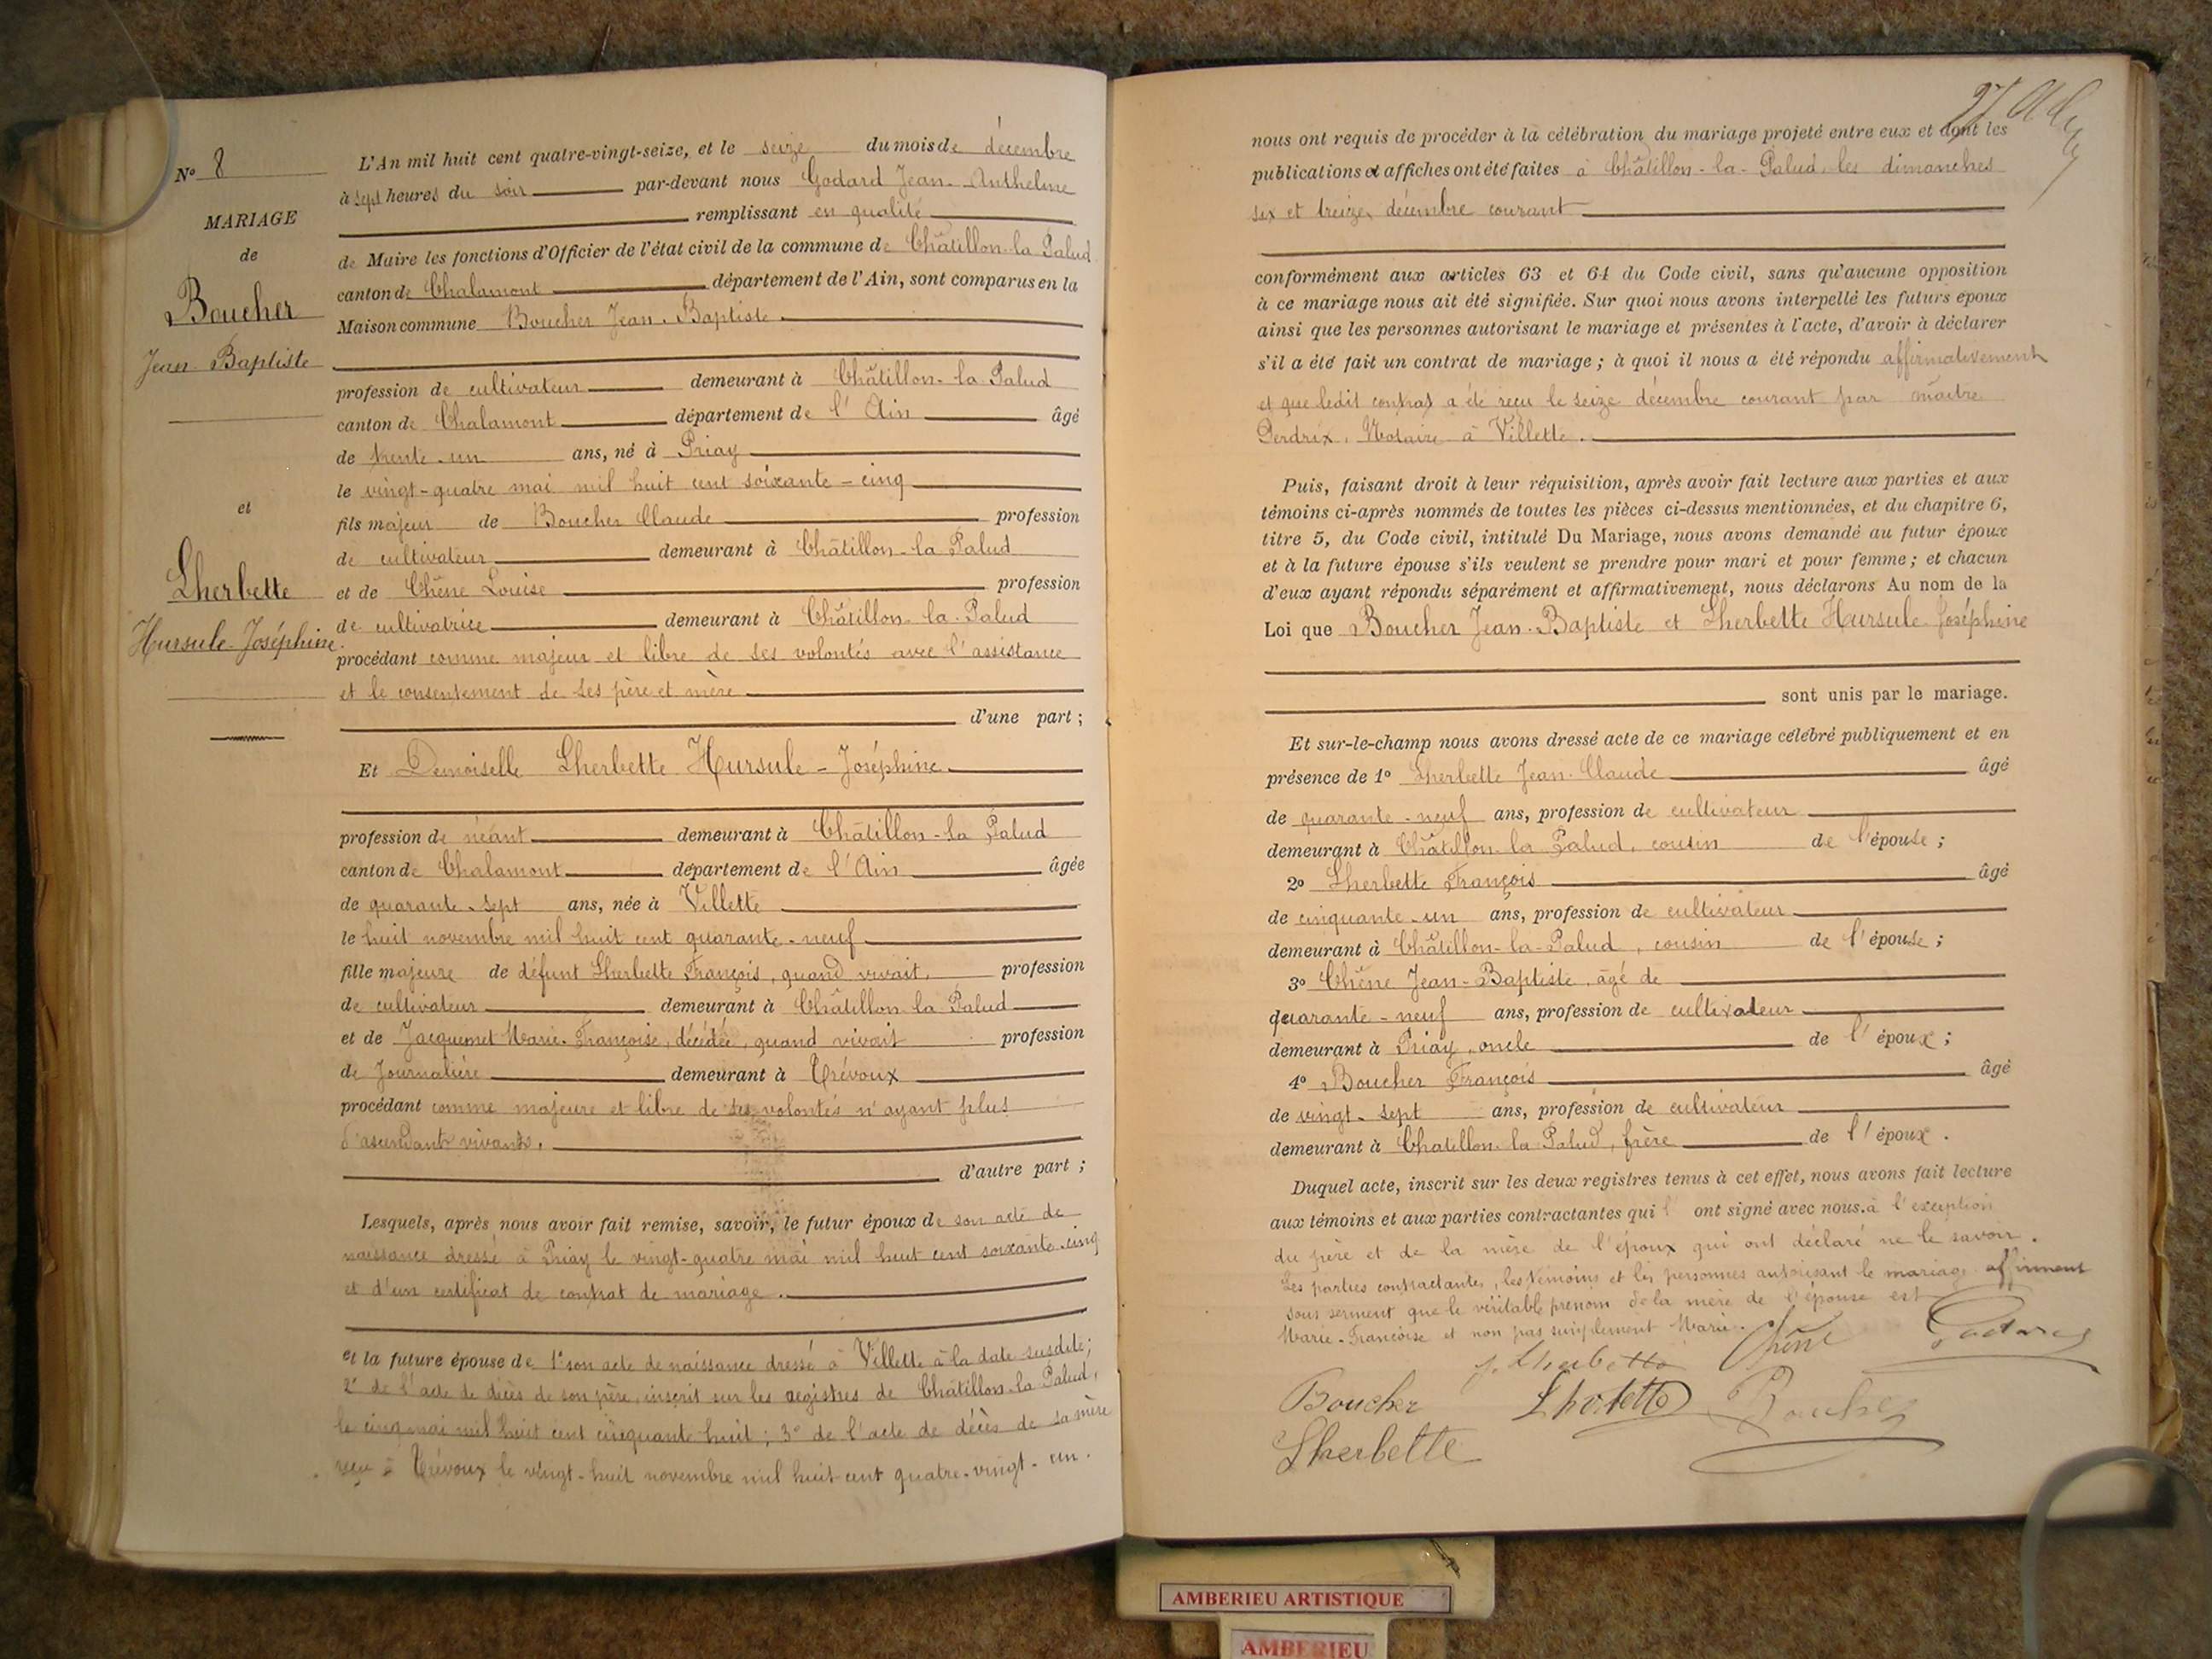 N° 8
MARIAGE
de
Boucher
Jean-Baptiste
et
Lherbette
Hursule-Joséphine.
L'An mil huit cent quatre-vingt-seize, et le seize du mois de décembre
à sept heures du soir par-devant nous Godard Jean-Anthelme
remplissant en qualité
de Maire les fonctions d'Officier de l'état civil de la commune de Châtillon-la Palud
canton de Chalamont département de l'Ain, sont comparus en la
Maison commune Boucher Jean-Baptiste
profession de cultivateur demeurant à Châtillon-la Palud
canton de Chalamont département de l'Ain âgé
de trente-un ans, né à Priay
le vingt-quatre mai mil huit cent soixante-cinq
fils majeur de Boucher Claude profession
de cultivateur demeurant à Châtillon-la Palud
et de Chêne Louise profession
de cultivatrice demeurant à Châtillon-la-Palud
procédant comme majeur et libre de ses volontés avec l'assistance
et le consentement de ses père et mère
d'une part ;
Et Demoiselle Lherbette Hursule-Joséphine
profession de néant demeurant à Châtillon-la Palud
canton de Chalamont département de l'Ain âgée
de quarante-sept ans, née à Villette
le huit novembre mil huit cent quarante-neuf
fille majeure de défunt Lherbette François, quand vivait, profession
de cultivateur demeurant à Châtillon-la Palud
et de Jacquemet Marie-Françoise, décédée, quand vivait profession
de Journalière demeurant à Trévoux
procédant comme majeure et libre de ses volontés n'ayant plus
d'ascendants vivants.
d'autre part ;
Lesquels, après nous avoir fait remise, savoir, le futur époux de son acte de
naissance dressé à Priay le vingt-quatre mai mil huit cent soixante-cinq
et d'un certificat de contrat de mariage.
et la future épouse de 1° son acte de naissance dressé à Villette à la date susdite;
2° de l'acte de décès de son père, inscrit sur les registres de Châtillon-la Palud,
le cinq mai mil huit cent cinquante huit ; 3° de l'acte de décès de sa mère
reçu à Trévoux le vingt-huit novembre mil huit cent quatre-vingt-un.
nous ont requis de procéder à la célébration du mariage projeté entre eux et dont les
publications et affiches ont été faites à Châtillon-la-Palud, les dimanches
six et treize décembre courant
conformément aux articles 63 et 64 du Code civil, sans qu'aucune opposition
à ce mariage nous ait été signifiée. Sur quoi nous avons interpellé les futurs époux
ainsi que les personnes autorisant le mariage et présentes à l'acte, d'avoir à déclarer
s'il a été fait un contrat de mariage ; à quoi il nous a été répondu affirmativement
et que ledit contrat a été reçu le seize décembre courant par maître
Perdrix, Notaire à Villette.
Puis, faisant droit à leur réquisition, après avoir fait lecture aux parties et aux
témoins ci-après nommés de toutes les pièces ci-dessus mentionnées, et du chapitre 6,
titre 5, du Code civil, intitulé Du Mariage, nous avons demandé au futur époux
et à la future épouse s'ils veulent se prendre pour mari et pour femme ; et chacun
d'eux ayant répondu séparément et affirmativement, nous déclarons Au nom de la
Loi que Boucher Jean-Baptiste et Lherbette Hursule-Joséphine
sont unis par le mariage.
Et sur-le-champ nous avons dressé acte de ce mariage célébré publiquement et en
présence de 1° Lherbette Jean-Claude âgé
de quarante-neuf ans, profession de cultivateur
demeurant à Châtillon-la Palud, cousin de l'épouse ;
2° Lherbette François âgé
de cinquante-un ans, profession de cultivateur
demeurant à Châtillon-la-Palud, cousin de l'épouse ;
3° Chêne Jean-Baptiste, âgé de
quarante-neuf ans, profession de cultivateur
demeurant à Priay, oncle de l'époux ;
4° Boucher François âgé
de vingt-sept ans, profession de cultivateur
demeurant à Chatillon-la-Palud, frère de l'époux.
Duquel acte, inscrit sur les deux registres tenus à cet effet, nous avons fait lecture
aux témoins et aux parties contractantes qui l' ont signé avec nous. à l'exception
du père et de la mère de l'époux qui ont déclaré ne le savoir.
Les parties contractantes, les témoins et les personnes autorisant le mariage affirment
sous serment que le véritable prénom de la mère de l'épouse est
Marie-Françoise et non pas simplement Marie.
J. Lherbette Chêne Godard
Boucher Lherbette Boucher
Lherbette
AMBERIEU ARTISTIQUE
AMBERIEU